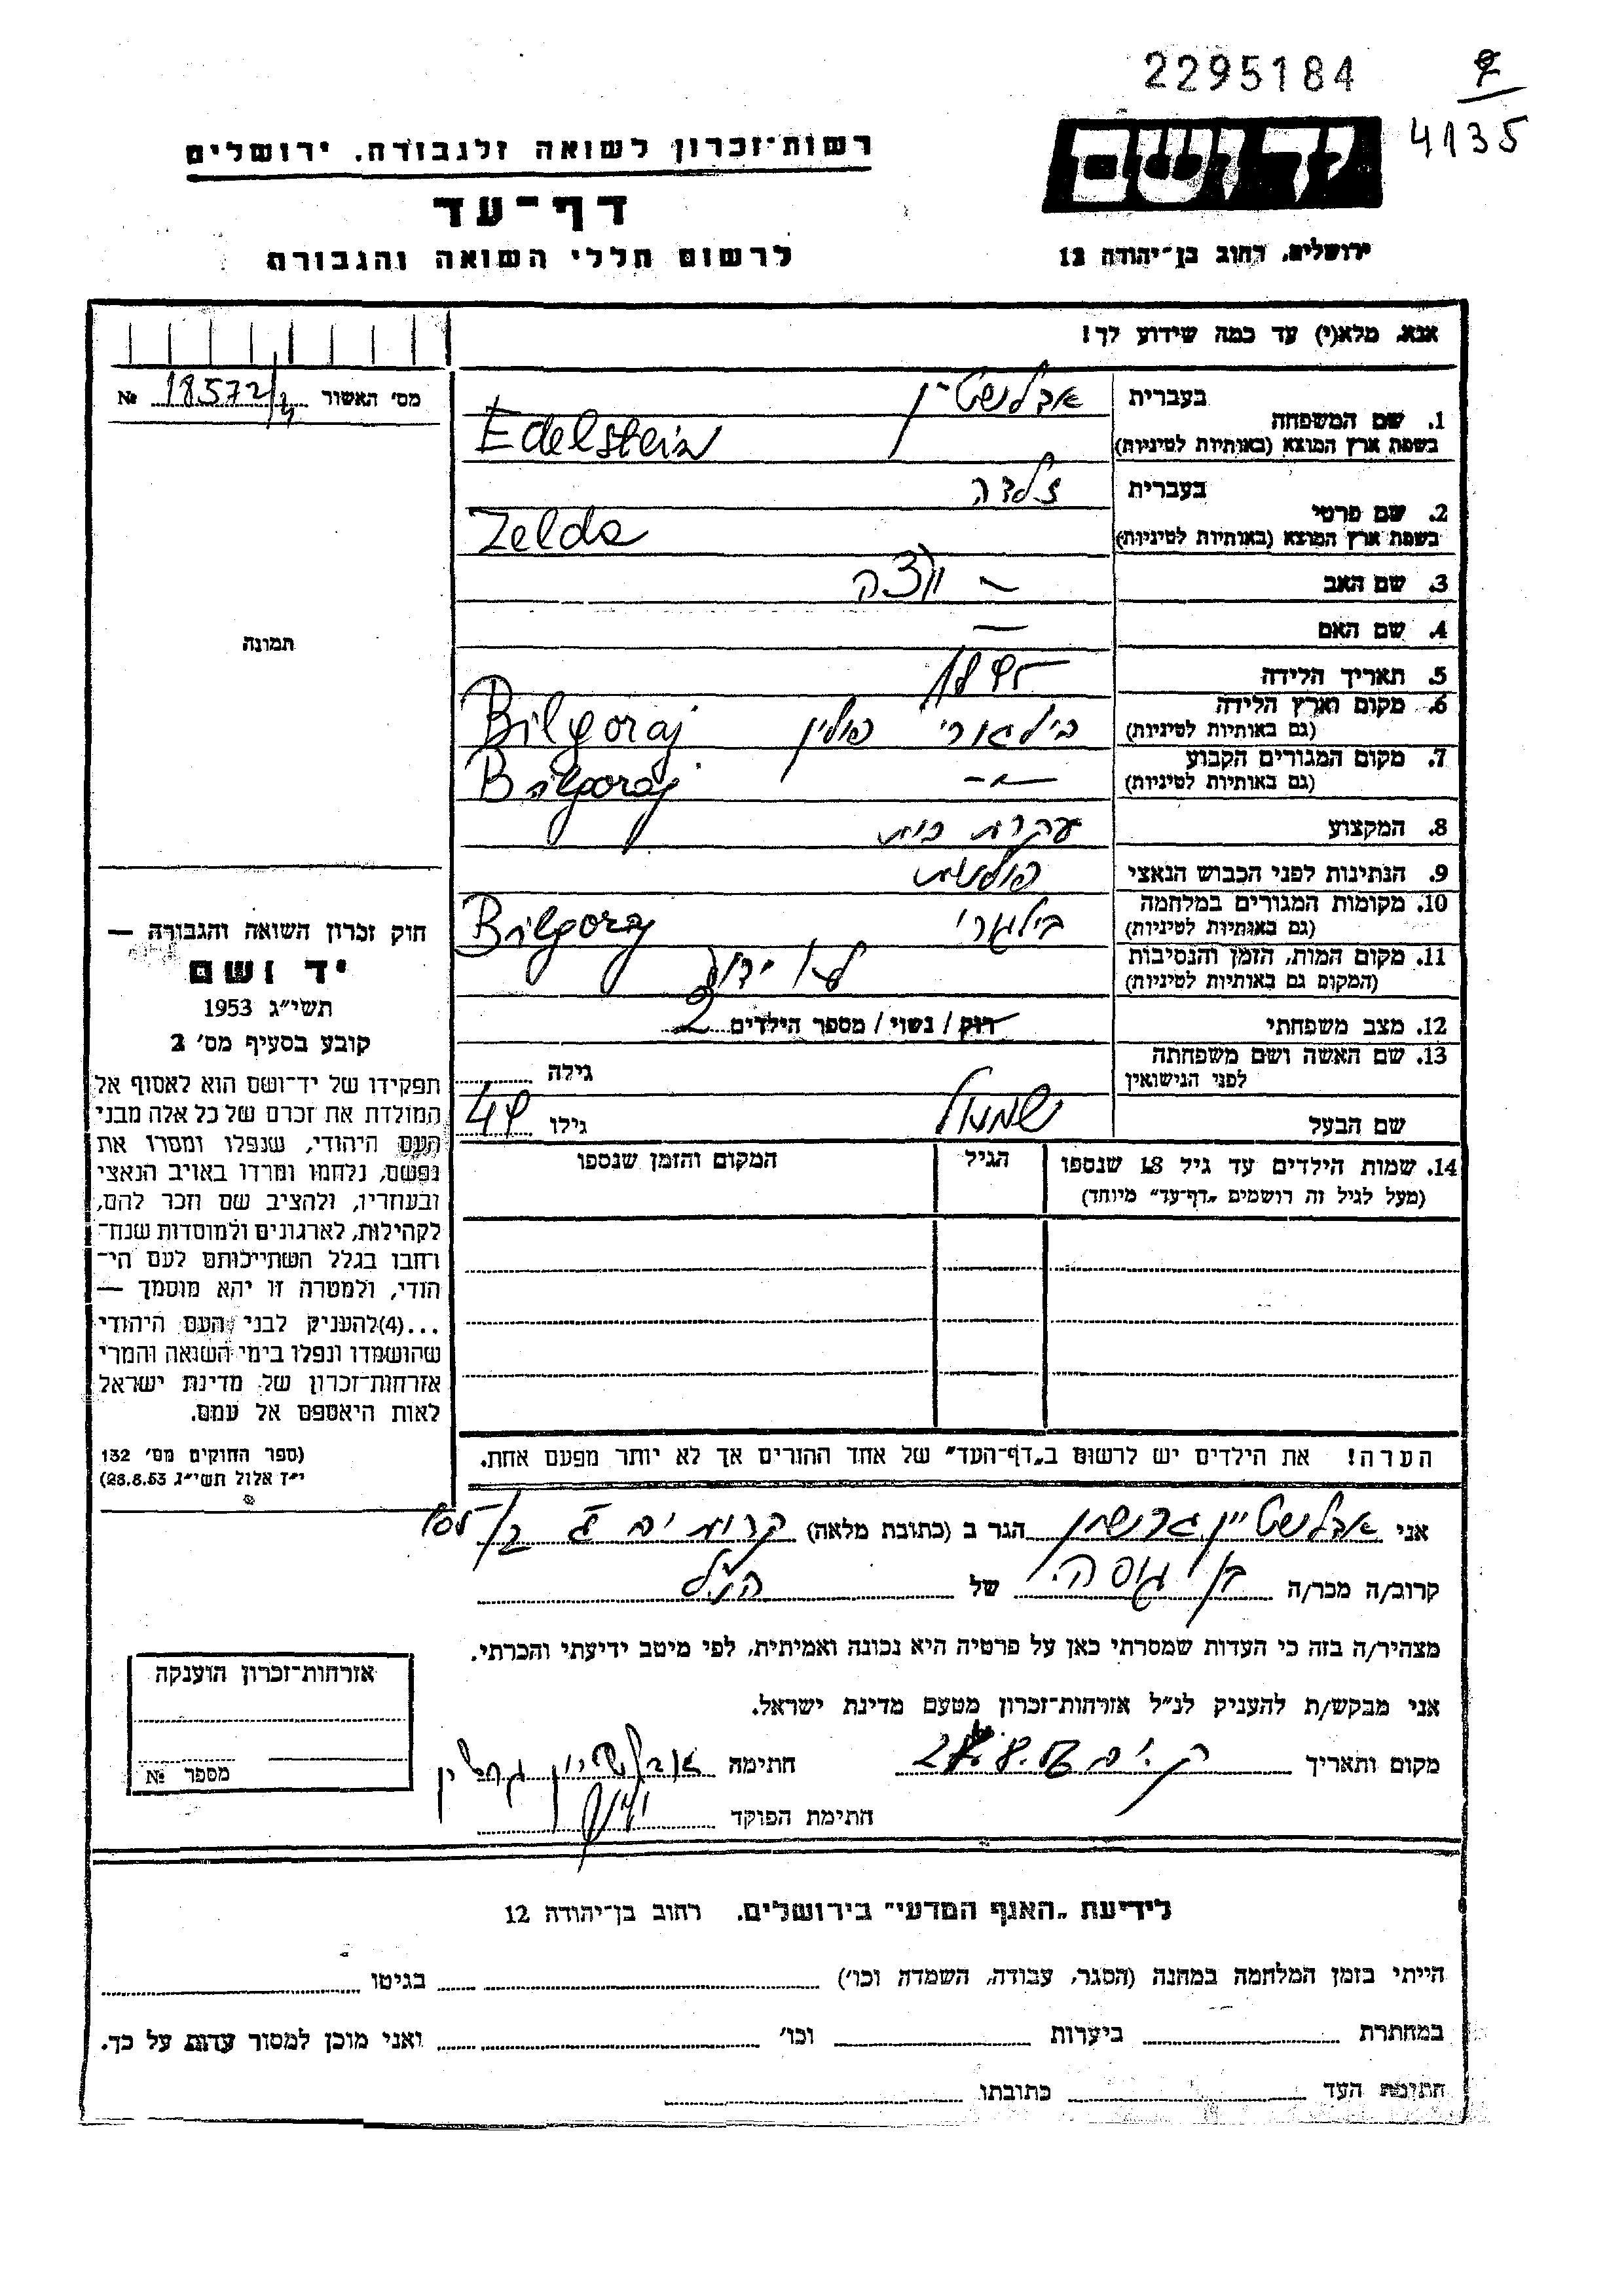 2295184
4135
רשות־זכרון לשואה ולגבורה, ירושלים
יד ושם
דף־עד
לרשום חללי השואה והגבורה
ירושלים, רחוב בן־יהודה 12
אנא, מלא(י) עד כמה שידוע לך!
מס' האשור 18572 №
1. שם המשפחה
בעברית אדלשטיין
בשפת ארץ המוצא (באותיות לטיניות) Edelstein
2. שם פרטי
בעברית זלדה
בשפת ארץ המוצא (באותיות לטיניות) Zelda
3. שם האב —
4. שם האם —
5. תאריך הלידה 1895
6. מקום וארץ הלידה (גם באותיות לטיניות) בילגורי פולין Bilgoraj
7. מקום המגורים הקבוע (גם באותיות לטיניות) —״— Bilgoraj
8. המקצוע עקרת בית
9. הנתינות לפני הכבוש הנאצי פולנית
10. מקומות המגורים במלחמה (גם באותיות לטיניות) בילגורי Bilgoraj
11. מקום המות, הזמן והנסיבות (המקום גם באותיות לטיניות) לא ידוע
12. מצב משפחתי רווק / נשוי / מספר הילדים 2
13. שם האשה ושם משפחתה לפני הנישואין גילה
שם הבעל שמואל גילו 49
14. שמות הילדים עד גיל 18 שנספו
(מעל לגיל זה רושמים „דף־עד” מיוחד)
הגיל
המקום והזמן שנספו
הערה! את הילדים יש לרשום ב„דף־העד” של אחד ההורים אך לא יותר מפעם אחת.
תמונה
חוק זכרון השואה והגבורה —
יד ושם
תשי״ג 1953
קובע בסעיף מס' 2
תפקידו של יד־ושם הוא לאסוף אל
המולדת את זכרם של כל אלה מבני
העם היהודי, שנפלו ומסרו את
נפשם, נלחמו ומרדו באויב הנאצי
ובעוזריו, ולהציב שם וזכר להם,
לקהילות, לארגונים ולמוסדות שנח־
רחבו בגלל השתייכותם לעם הי־
הודי, ולמטרה זו יהא מוסמך —
...(4) להעניק לבני העם היהודי
שהושמדו ונפלו בימי השואה והמרי
אזרחות־זכרון של מדינת ישראל
לאות היאספם אל עמם.
(ספר החוקים מס' 132
י״ז אלול תשי״ג 28.8.53)
אני אדלשטיין גרשון הגר ב (כתובת מלאה) קרית ים ג
קרוב/ה מכר/ה של הנ״ל
מצהיר/ה בזה כי העדות שמסרתי כאן על פרטיה היא נכונה ואמיתית, לפי מיטב ידיעתי והכרתי.
אני מבקש/ת להעניק לנ״ל אזרחות־זכרון מטעם מדינת ישראל.
מקום ותאריך ק. ים חתימה אדלשטיין גרשון
חתימת הפוקד
אזרחות־זכרון הוענקה
מספר №
לידיעת „האגף המדעי” בירושלים, רחוב בן־יהודה 12
הייתי בזמן המלחמה במחנה (הסגר, עבודה, השמדה וכו') בגיטו
במחתרת ביערות וכו' ואני מוכן למסור עדות על כך.
חתימת העד כתובתו